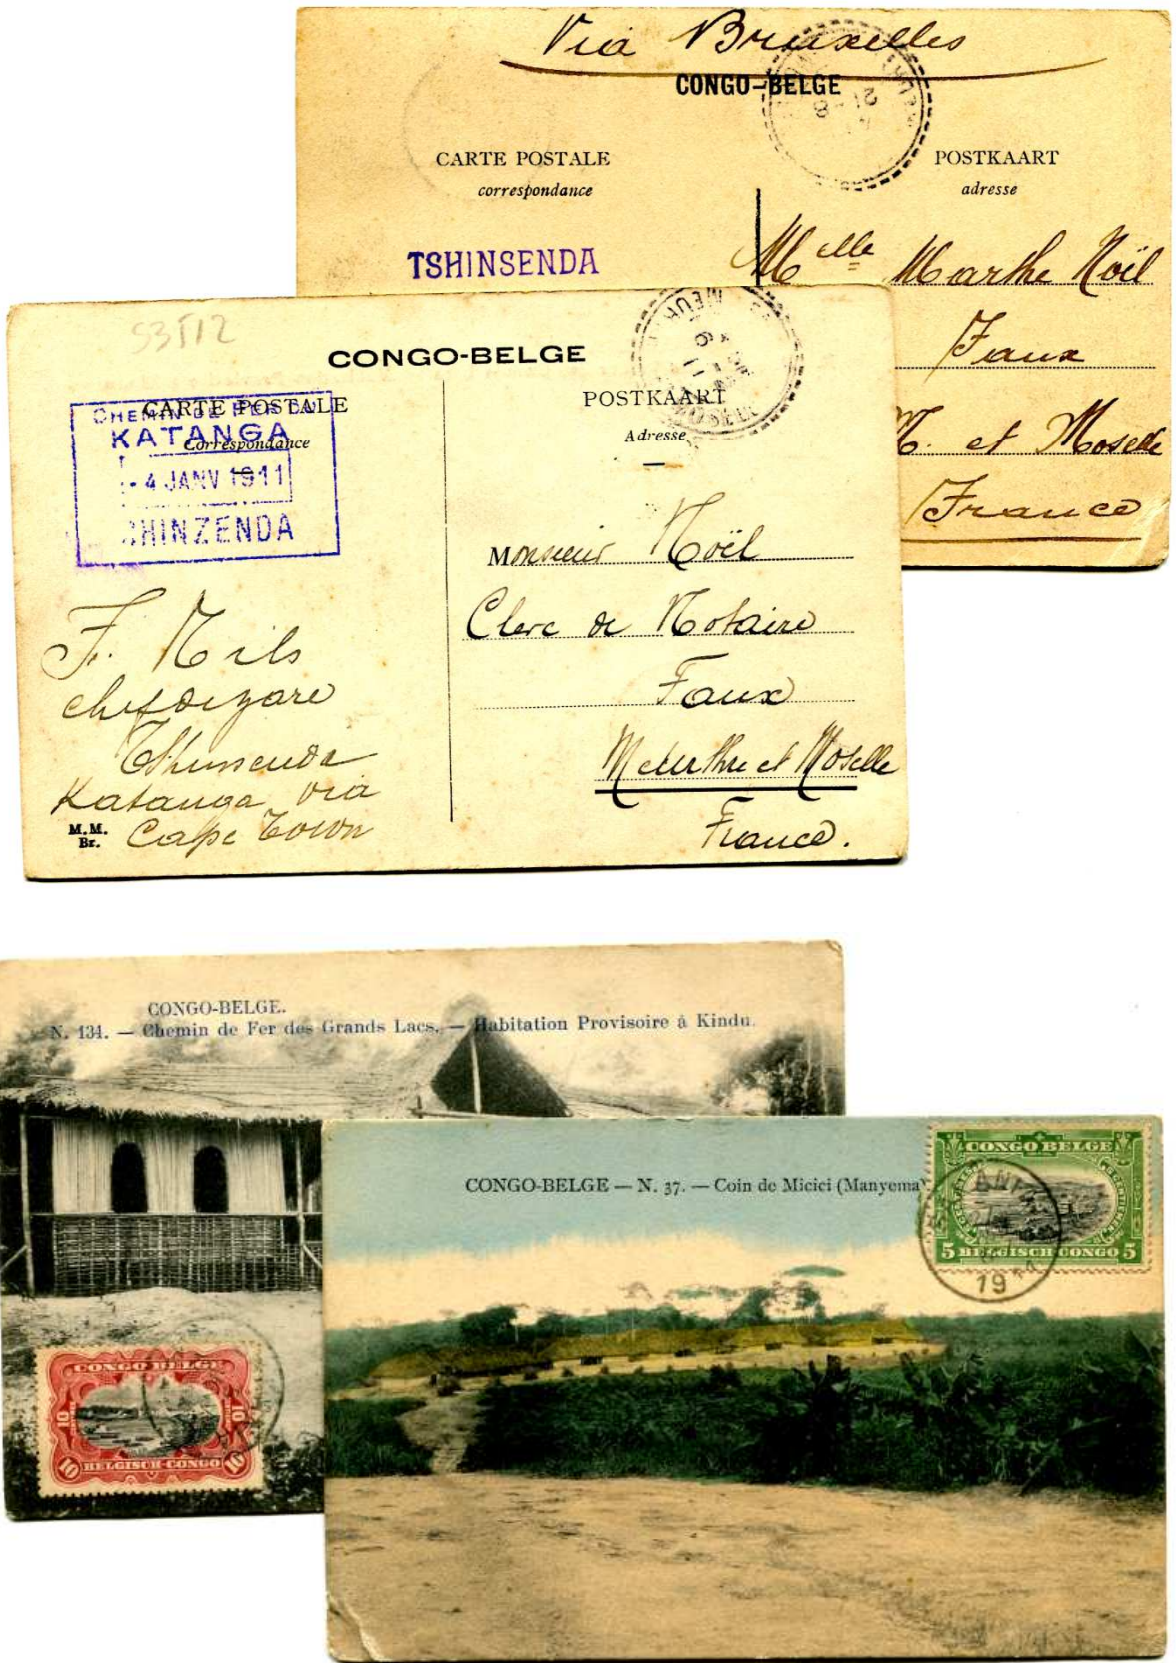 Via Bruxelles
CONGO-BELGE
CARTE POSTALE
correspondance
POSTKAART
adresse
TSHINSENDA
Melle Marthe Noël
Faux
M. et Moselle
France
53T12
CONGO-BELGE
CARTE POSTALE
Correspondance
POSTKAART
Adresse
CHEMIN DE FER DU
KATANGA
-4 JANV 1911
SHINZENDA
Monsieur Noël
Clerc de Notaire
Faux
Meurthe et Moselle
France.
F. Nils
chef de gare
Tshinsenda
Katanga via
Cape Town
M.M.
Br.
CONGO-BELGE.
N. 134. — Chemin de Fer des Grands Lacs. — Habitation Provisoire à Kindu.
CONGO BELGE
10 10
10 BELGISCH-CONGO 10
CONGO-BELGE — N. 37. — Coin de Micici (Manyema)
CONGO BELGE
5 BELGISCH-CONGO 5
19